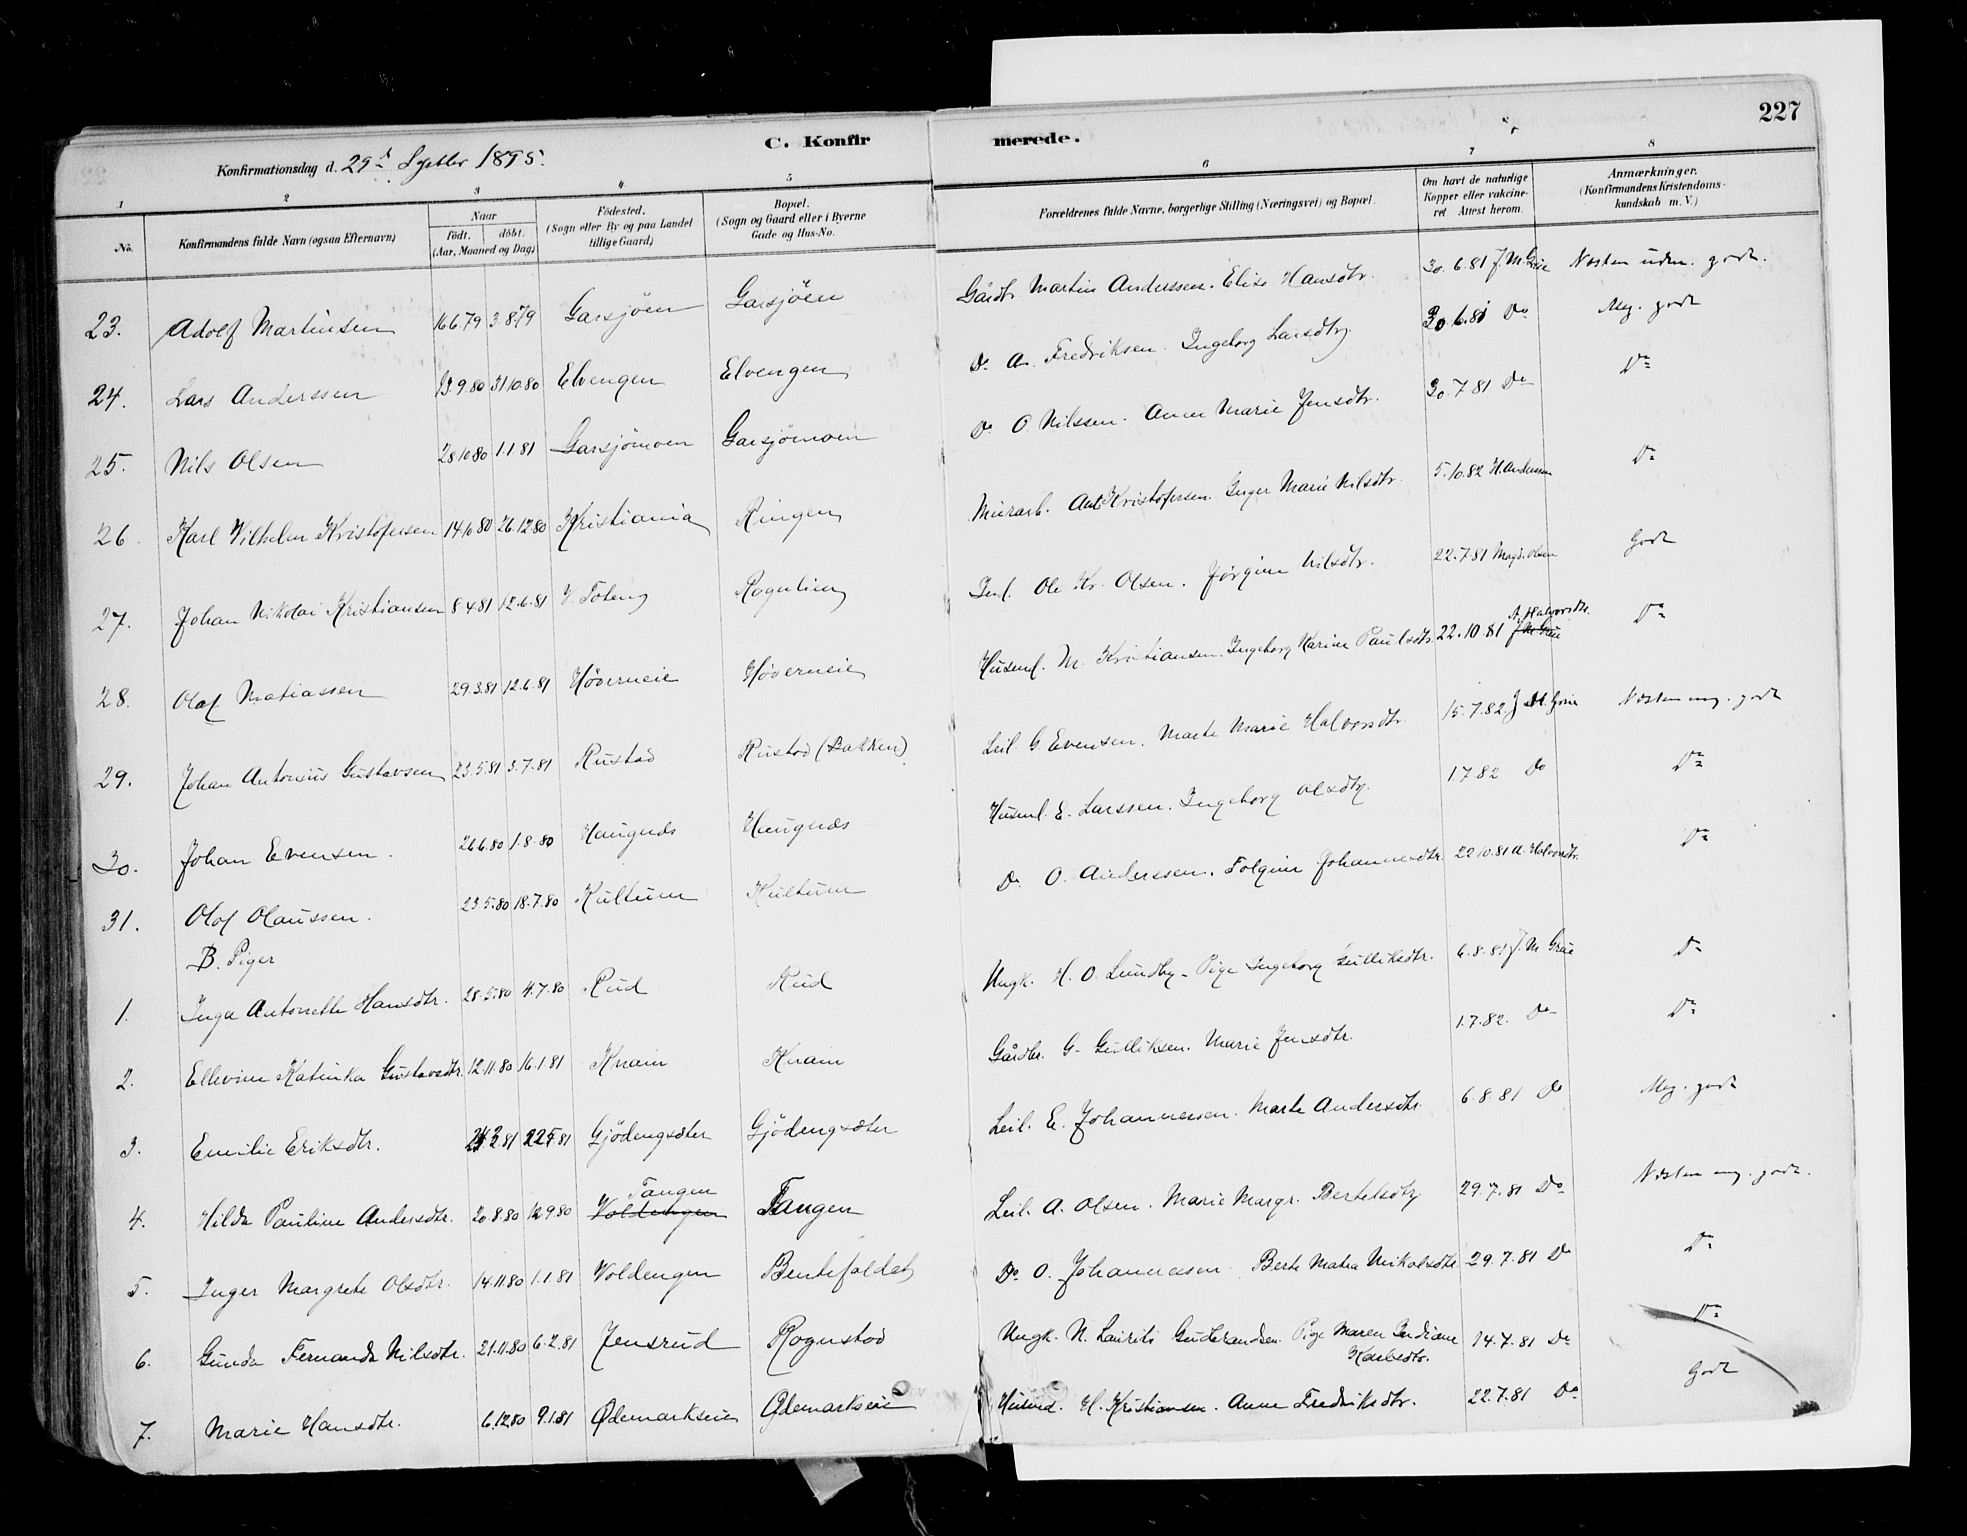 227
C. Konfirmerede.
Konfirmationsdag d. 29d Septbr 1895.
1 2 3 4 5 6 7 8
No. Konfirmandens fulde Navn (ogsaa Efternavn) Naar født. døbt. (Aar, Maaned og Dag) Fødested. (Sogn eller By og paa Landet tillige Gaard) Bopæl. (Sogn og Gaard eller i Byerne Gade og Hus-No. Forældrenes fulde Navne, borgerlige Stilling (Næringsvei) og Bopæl. Om havt de naturlige Kopper eller vakcineret Attest herom. Anmærkninger. (Konfirmandens Kristendomskundskab m. V.)
23. Adolf Martinsen 16.6.79 3.8.79 Garsjöen Garsjöen Gårdbr. Martin Anderssen. Elise Hansdtr. 30.6.81 J. M. Grue Næsten udm. godt.
24. Lars Anderssen 13.9.80 31.10.80 Elvengen Elvengen Do A. Fredriksen. Ingeborg Larsdtr. 30.6.81 Do Meg. godt
25. Nils Olsen 28.10.80 1.1.81 Garsjömoen Garsjömoen Do O. Nilssen. Anne Marie Jensdtr. 30.7.81 Do Do
26. Karl Vilhelm Kristofersen 14.10.80 26.12.80 Kristiania Ringen Murarb. Ant. Kristofersen. Inger Marie Nilsdtr. 5.10.82 H. Anderssen Do
27. Johan Nikolai Kristiansen 8.4.81 12.6.81 V. Toten Rognlien Inl. Ole Kr. Olsen. Jørgine Nilsdtr. 22.7.81 Magd. Olsen Godt
28. Olaf Matiassen 29.3.81 12.6.81 Høverneie Høverneie Husml. M. Kristiansen. Ingeborg Karine Paulsdtr. 22.10.81 J. M. Grue A. Halvorsdtr. Do
29. Johan Antonius Gustavsen 23.5.81 3.7.81 Rustad Rustad (Bakken) Leil. G. Evensen. Marte Marie Halvorsdtr. 15.7.82. J. M. Grue Næsten meg. godt
30. Johan Evensen. 26.6.80 1.8.80 Haugnæs Haugnæs Husml. E. Larssen. Ingeborg Olsdtr. 1.7.82 Do Do
31. Olof Olaussen. 23.5.80 18.7.80 Kultum Kultum Do O. Anderssen. Folqine Johannesdtr. 22.10.81 A. Halvorsdtr. Do
B. Piger
1. Inga Antonette Hansdtr. 28.5.80 4.7.80 Rud Rud Ungk. H. O. Lundby - Pige Ingeborg Gulliksdtr. 6.8.81 J. M. Grue Do
2. Ellevine Katinka Gustavsdtr. 12.11.80 16.1.81 Knaim Knaim Gårdbr. G. Gulliksen. Marie Jensdtr. 1.7.82. Do Do
3. Emilie Eriksdtr. Gjödengsæter Gjödengsæter Leil. E. Johannessen. Marte Andersdtr. 6.8.81 Do Meg. godt
4. Hilda Pauline Andersdtr. 20.8.80 12.9.80 Voldengen Tangen Tangen Leil. A. Olsen. Marie Margr. Bertelsdtr. 29.7.81 Do Næsten meg. godt.
5. Inger Margrete Olsdtr. 14.11.80 1.1.81 Voldengen Bentefaldet Do O. Johannessen Berte Matea Nikolsdtr. 29.7.81 Do Do
6. Gunda Fernanda Nilsdtr. 21.11.80 6.2.81 Jensrud Rognstad Ungk. N. Lauriti Gudbrandsen Pige Maren Indiane Karlsdtr. 14.7.81 Do Do
7. Marie Hansdtr. 6.12.80 9.1.81 Ødemarkseie Ødemarkseie Husmd. H. Kristiansen. Anne Fredriksdtr. 22.7.81 Do Godt